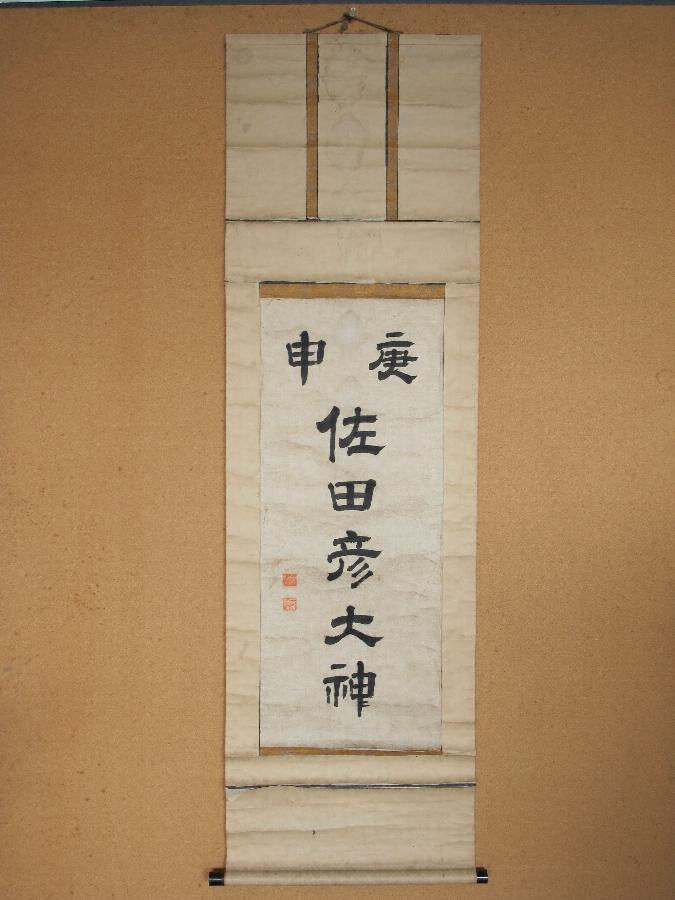 庚申
佐田彦大神